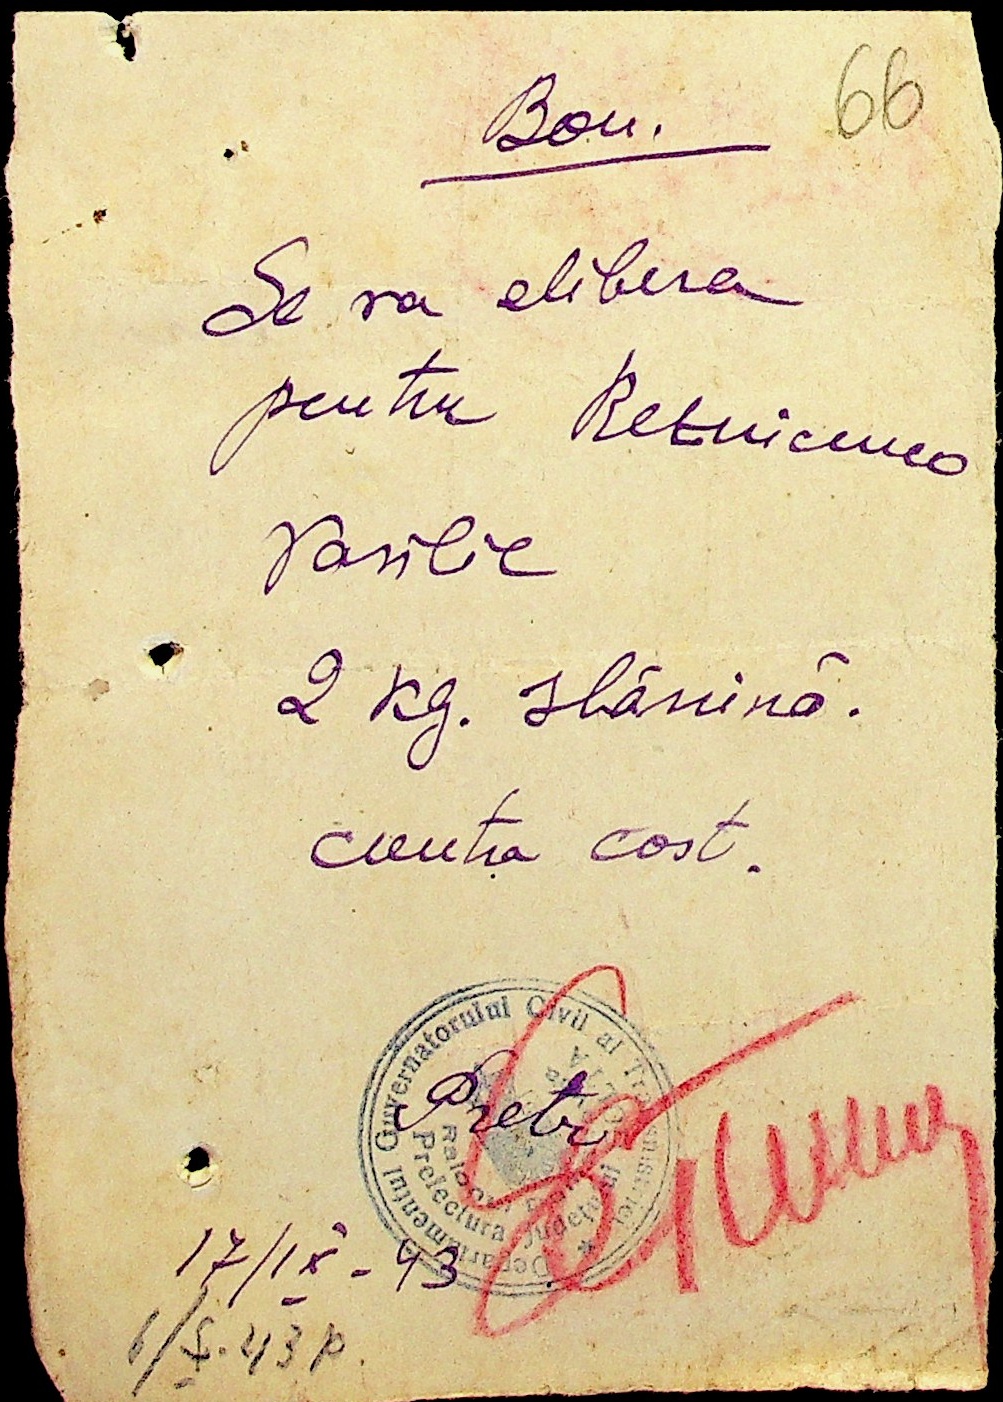 66
Bon.
Se va elibera
pentru Retnicenco
Vasilie
2 kg. slănină.
contra cost.
Guvernatorului Civil al Transnistriei
Pretor
Prefectura Județului
Departamentul
17/IX - 43
6/X. 43 p.